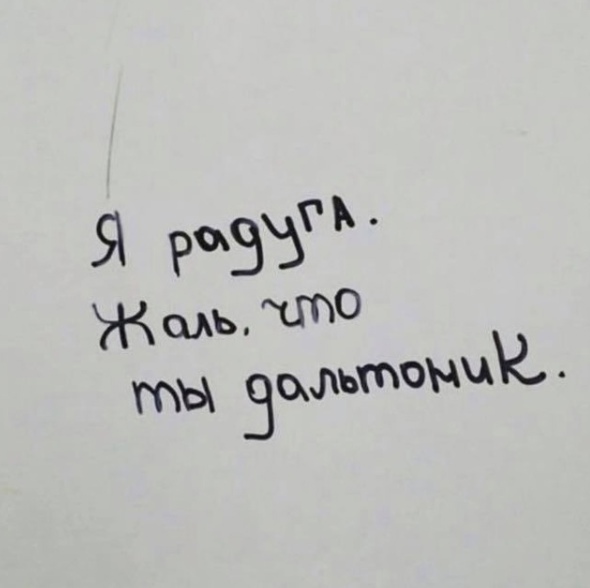 Я радуга.
Жаль, что
ты дальтоник.